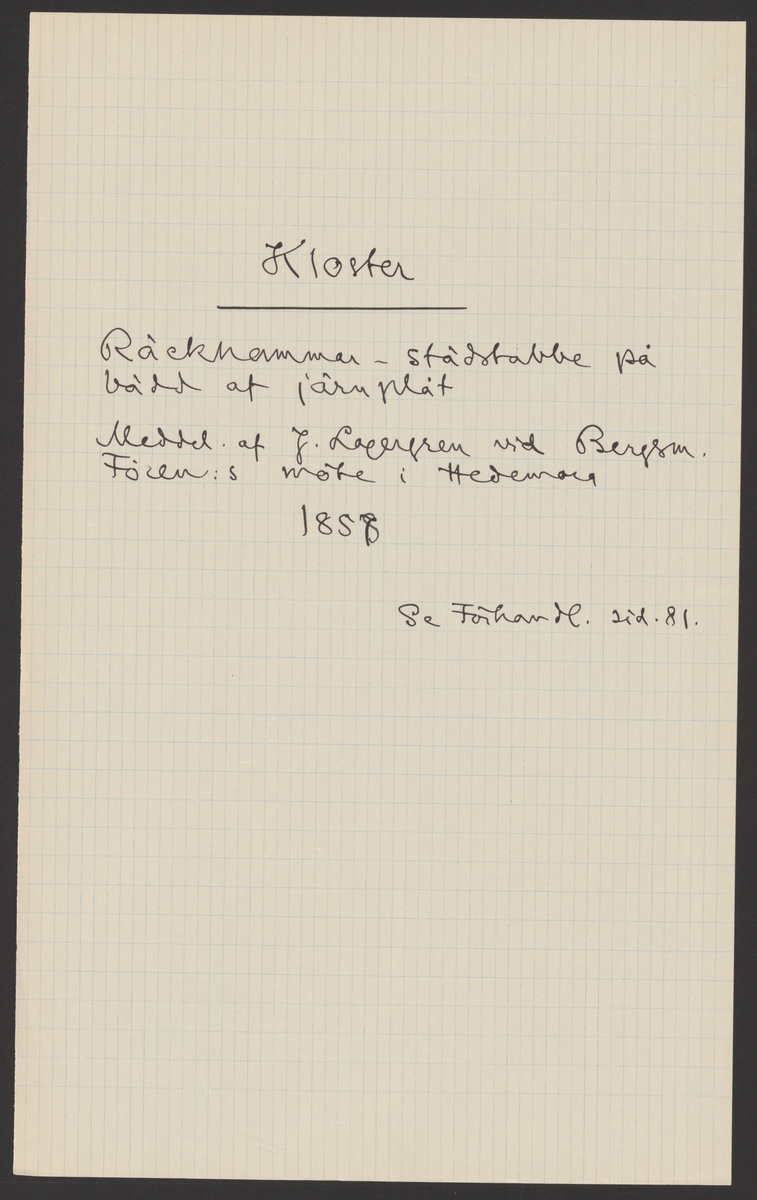 Kloster
Räckhammar - städstabbe på
bädd af järnplåt
Meddel. af J. Lagergren vid Bergsm.
Fören:s möte i Hedemora
1858
Se Förhandl. sid. 81.